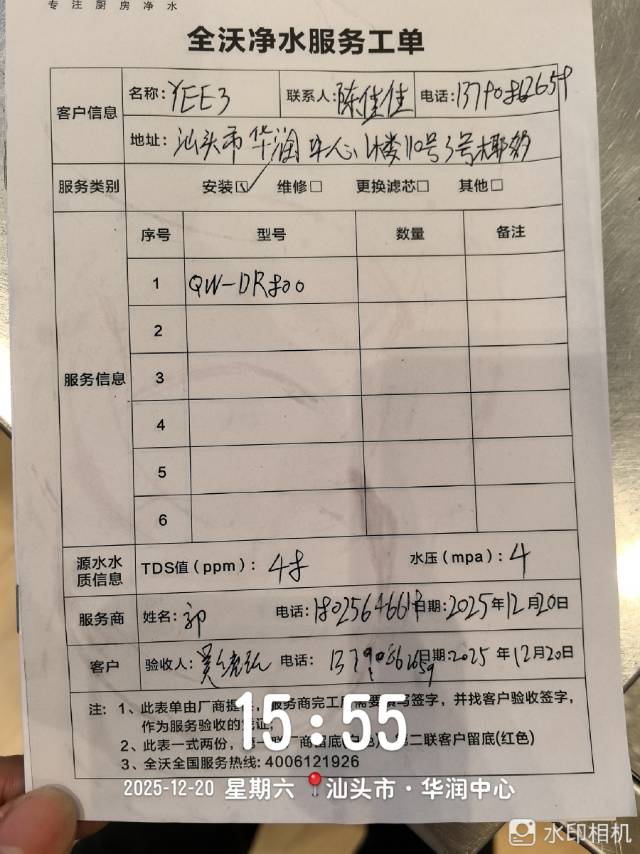 专注厨房净水
全沃净水服务工单
客户信息
名称：YEE3 联系人：陈佳佳 电话：13790862659
地址：汕头市华润中心 1楼110号
服务类别 安装☑ 维修□ 更换滤芯□ 其他□
服务信息
序号 型号 数量 备注
1 QW-DR800
2
3
4
5
6
源水水质信息 TDS值（ppm）：48 水压（mpa）：4
服务商 姓名：郭 电话： 日期：2025年12月20日
客户 验收人： 电话： 日期：2025年12月20日
注：1、此表单由厂商提供，服务商完工后需要填写签字，并找客户验收签字，
作为服务验收的凭证；
2、此表一式两份，第一联厂商留底(白色)，第二联客户留底(红色)
3、全沃全国服务热线：4006121926
15:55
2025-12-20 星期六 汕头市·华润中心
水印相机